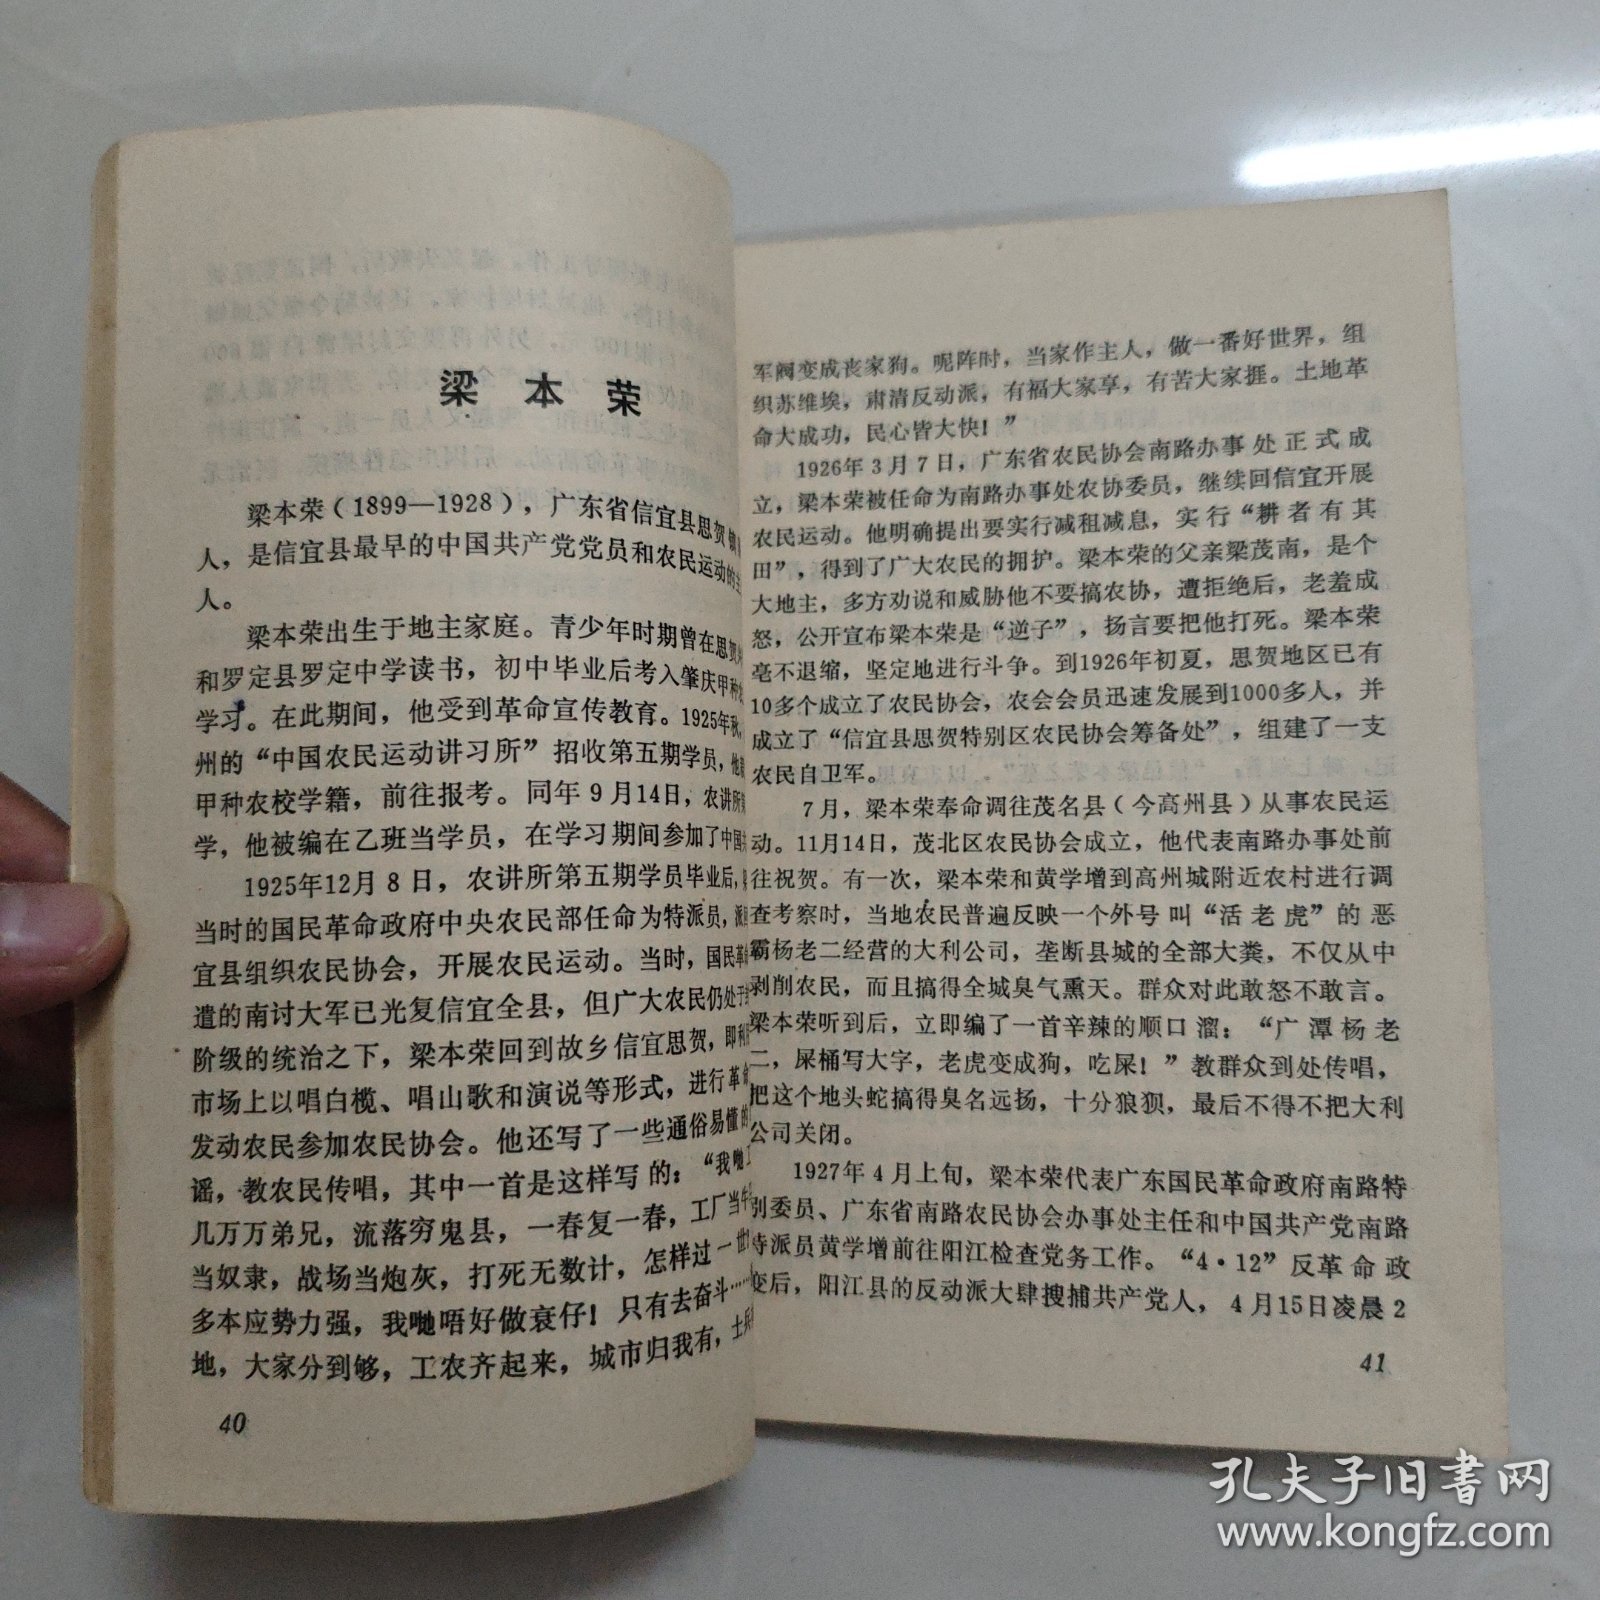 梁本荣
梁本荣（1899—1928），广东省信宜县思贺
人，是信宜县最早的中国共产党党员和农民运动的
人。
梁本荣出生于地主家庭。青少年时期曾在思贺
和罗定县罗定中学读书，初中毕业后考入肇庆甲种
学习。在此期间，他受到革命宣传教育。1925年秋，
州的“中国农民运动讲习所”招收第五期学员，他
甲种农校学籍，前往报考。同年9月14日，农讲所
学，他被编在乙班当学员，在学习期间参加了中国共
1925年12月8日，农讲所第五期学员毕业后，
当时的国民革命政府中央农民部任命为特派员，派
宜县组织农民协会，开展农民运动。当时，国民革
遣的南讨大军已光复信宜全县，但广大农民仍处于
阶级的统治之下，梁本荣回到故乡信宜思贺，即利
市场上以唱白榄、唱山歌和演说等形式，进行革
发动农民参加农民协会。他还写了一些通俗易懂的
谣，教农民传唱，其中一首是这样写的：“我哋工
几万万弟兄，流落穷鬼县，一春复一春，工厂当牛
当奴隶，战场当炮灰，打死无数计，怎样过一世
多本应势力强，我哋唔好做衰仔！只有去奋斗……
地，大家分到够，工农齐起来，城市归我有，土
40
军阀变成丧家狗。呢阵时，当家作主人，做一番好世界，组
织苏维埃，肃清反动派，有福大家享，有苦大家捱。土地革
命大成功，民心皆大快！”
1926年3月7日，广东省农民协会南路办事处正式成
立，梁本荣被任命为南路办事处农协委员，继续回信宜开展
农民运动。他明确提出要实行减租减息，实行“耕者有其
田”，得到了广大农民的拥护。梁本荣的父亲梁茂南，是个
大地主，多方劝说和威胁他不要搞农协，遭拒绝后，老羞成
怒，公开宣布梁本荣是“逆子”，扬言要把他打死。梁本荣
毫不退缩，坚定地进行斗争。到1926年初夏，思贺地区已有
10多个成立了农民协会，农会会员迅速发展到1000多人，并
成立了“信宜县思贺特别区农民协会筹备处”，组建了一支
农民自卫军。
7月，梁本荣奉命调往茂名县（今高州县）从事农民运
动。11月14日，茂北区农民协会成立，他代表南路办事处前
往祝贺。有一次，梁本荣和黄学增到高州城附近农村进行调
查考察时，当地农民普遍反映一个外号叫“活老虎”的恶
霸杨老二经营的大利公司，垄断县城的全部大粪，不仅从中
剥削农民，而且搞得全城臭气熏天。群众对此敢怒不敢言。
梁本荣听到后，立即编了一首辛辣的顺口溜：“广潭杨老
二，屎桶写大字，老虎变成狗，吃屎！”教群众到处传唱，
把这个地头蛇搞得臭名远扬，十分狼狈，最后不得不把大利
公司关闭。
1927年4月上旬，梁本荣代表广东国民革命政府南路特
别委员、广东省南路农民协会办事处主任和中国共产党南路
特派员黄学增前往阳江检查党务工作。“4·12”反革命政
变后，阳江县的反动派大肆搜捕共产党人，4月15日凌晨2
41
孔夫子旧书网
www.kongfz.com